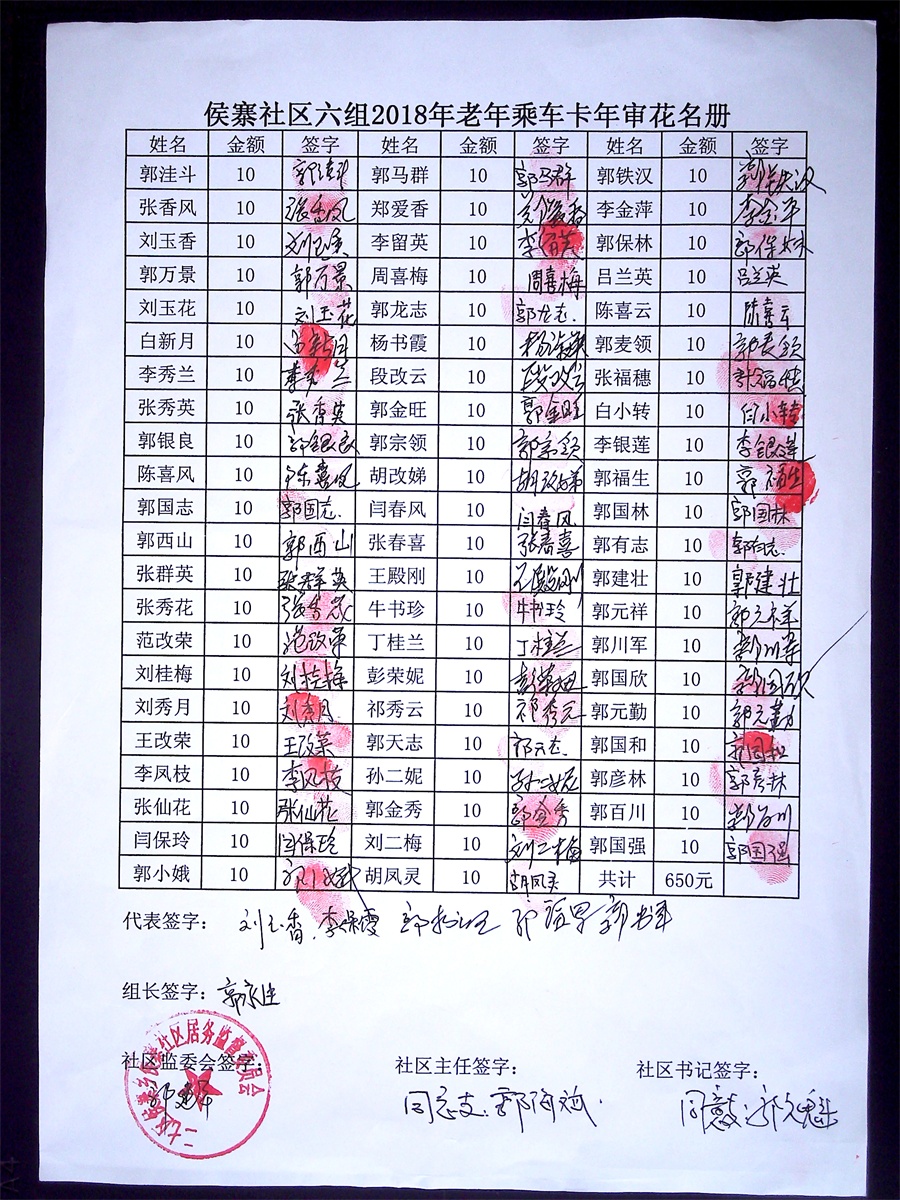 侯寨社区六组2018年老年乘车卡年审花名册
姓名 金额 签字 姓名 金额 签字 姓名 金额 签字
郭洼斗 10 郭洼斗 郭马群 10 郭马群 郭铁汉 10 郭铁汉
张香风 10 张香风 郑爱香 10 郑爱香 李金萍 10 李金平
刘玉香 10 刘玉香 李留英 10 李留英 郭保林 10 郭保林
郭万景 10 郭万景 周喜梅 10 周喜梅 吕兰英 10 吕兰英
刘玉花 10 刘玉花 郭龙志 10 郭龙志 陈喜云 10 陈喜云
白新月 10 白新月 杨书霞 10 郭麦领 10 郭麦领
李秀兰 10 李秀兰 段改云 10 段改云 张福穗 10 张福穗
张秀英 10 张秀英 郭金旺 10 郭金旺 白小转 10 白小转
郭银良 10 郭银良 郭宗领 10 郭宗领 李银莲 10 李银莲
陈喜风 10 陈喜风 胡改娣 10 胡改娣 郭福生 10 郭福生
郭国志 10 郭国志 闫春风 10 闫春风 郭国林 10 郭国林
郭西山 10 郭西山 张春喜 10 张春喜 郭有志 10 郭有志
张群英 10 张群英 王殿刚 10 王殿刚 郭建壮 10 郭建壮
张秀花 10 张秀花 牛书珍 10 牛书玲 郭元祥 10 郭元祥
范改荣 10 范改荣 丁桂兰 10 丁桂兰 郭川军 10 郭川军
刘桂梅 10 刘桂梅 彭荣妮 10 彭荣妞 郭国欣 10 郭国欣
刘秀月 10 刘秀月 祁秀云 10 祁秀云 郭元勤 10 郭元勤
王改荣 10 王改荣 郭天志 10 郭天志 郭国和 10 郭国和
李凤枝 10 李凤枝 孙二妮 10 孙二妮 郭彦林 10 郭彦林
张仙花 10 张仙花 郭金秀 10 郭金秀 郭百川 10 郭百川
闫保玲 10 闫保玲 刘二梅 10 刘二梅 郭国强 10 郭国强
郭小娥 10 胡凤灵 10 胡凤灵 共计 650元
代表签字： 刘玉香 李保霞
组长签字：
社区监委会签字： 社区主任签字： 社区书记签字：
同意 同意